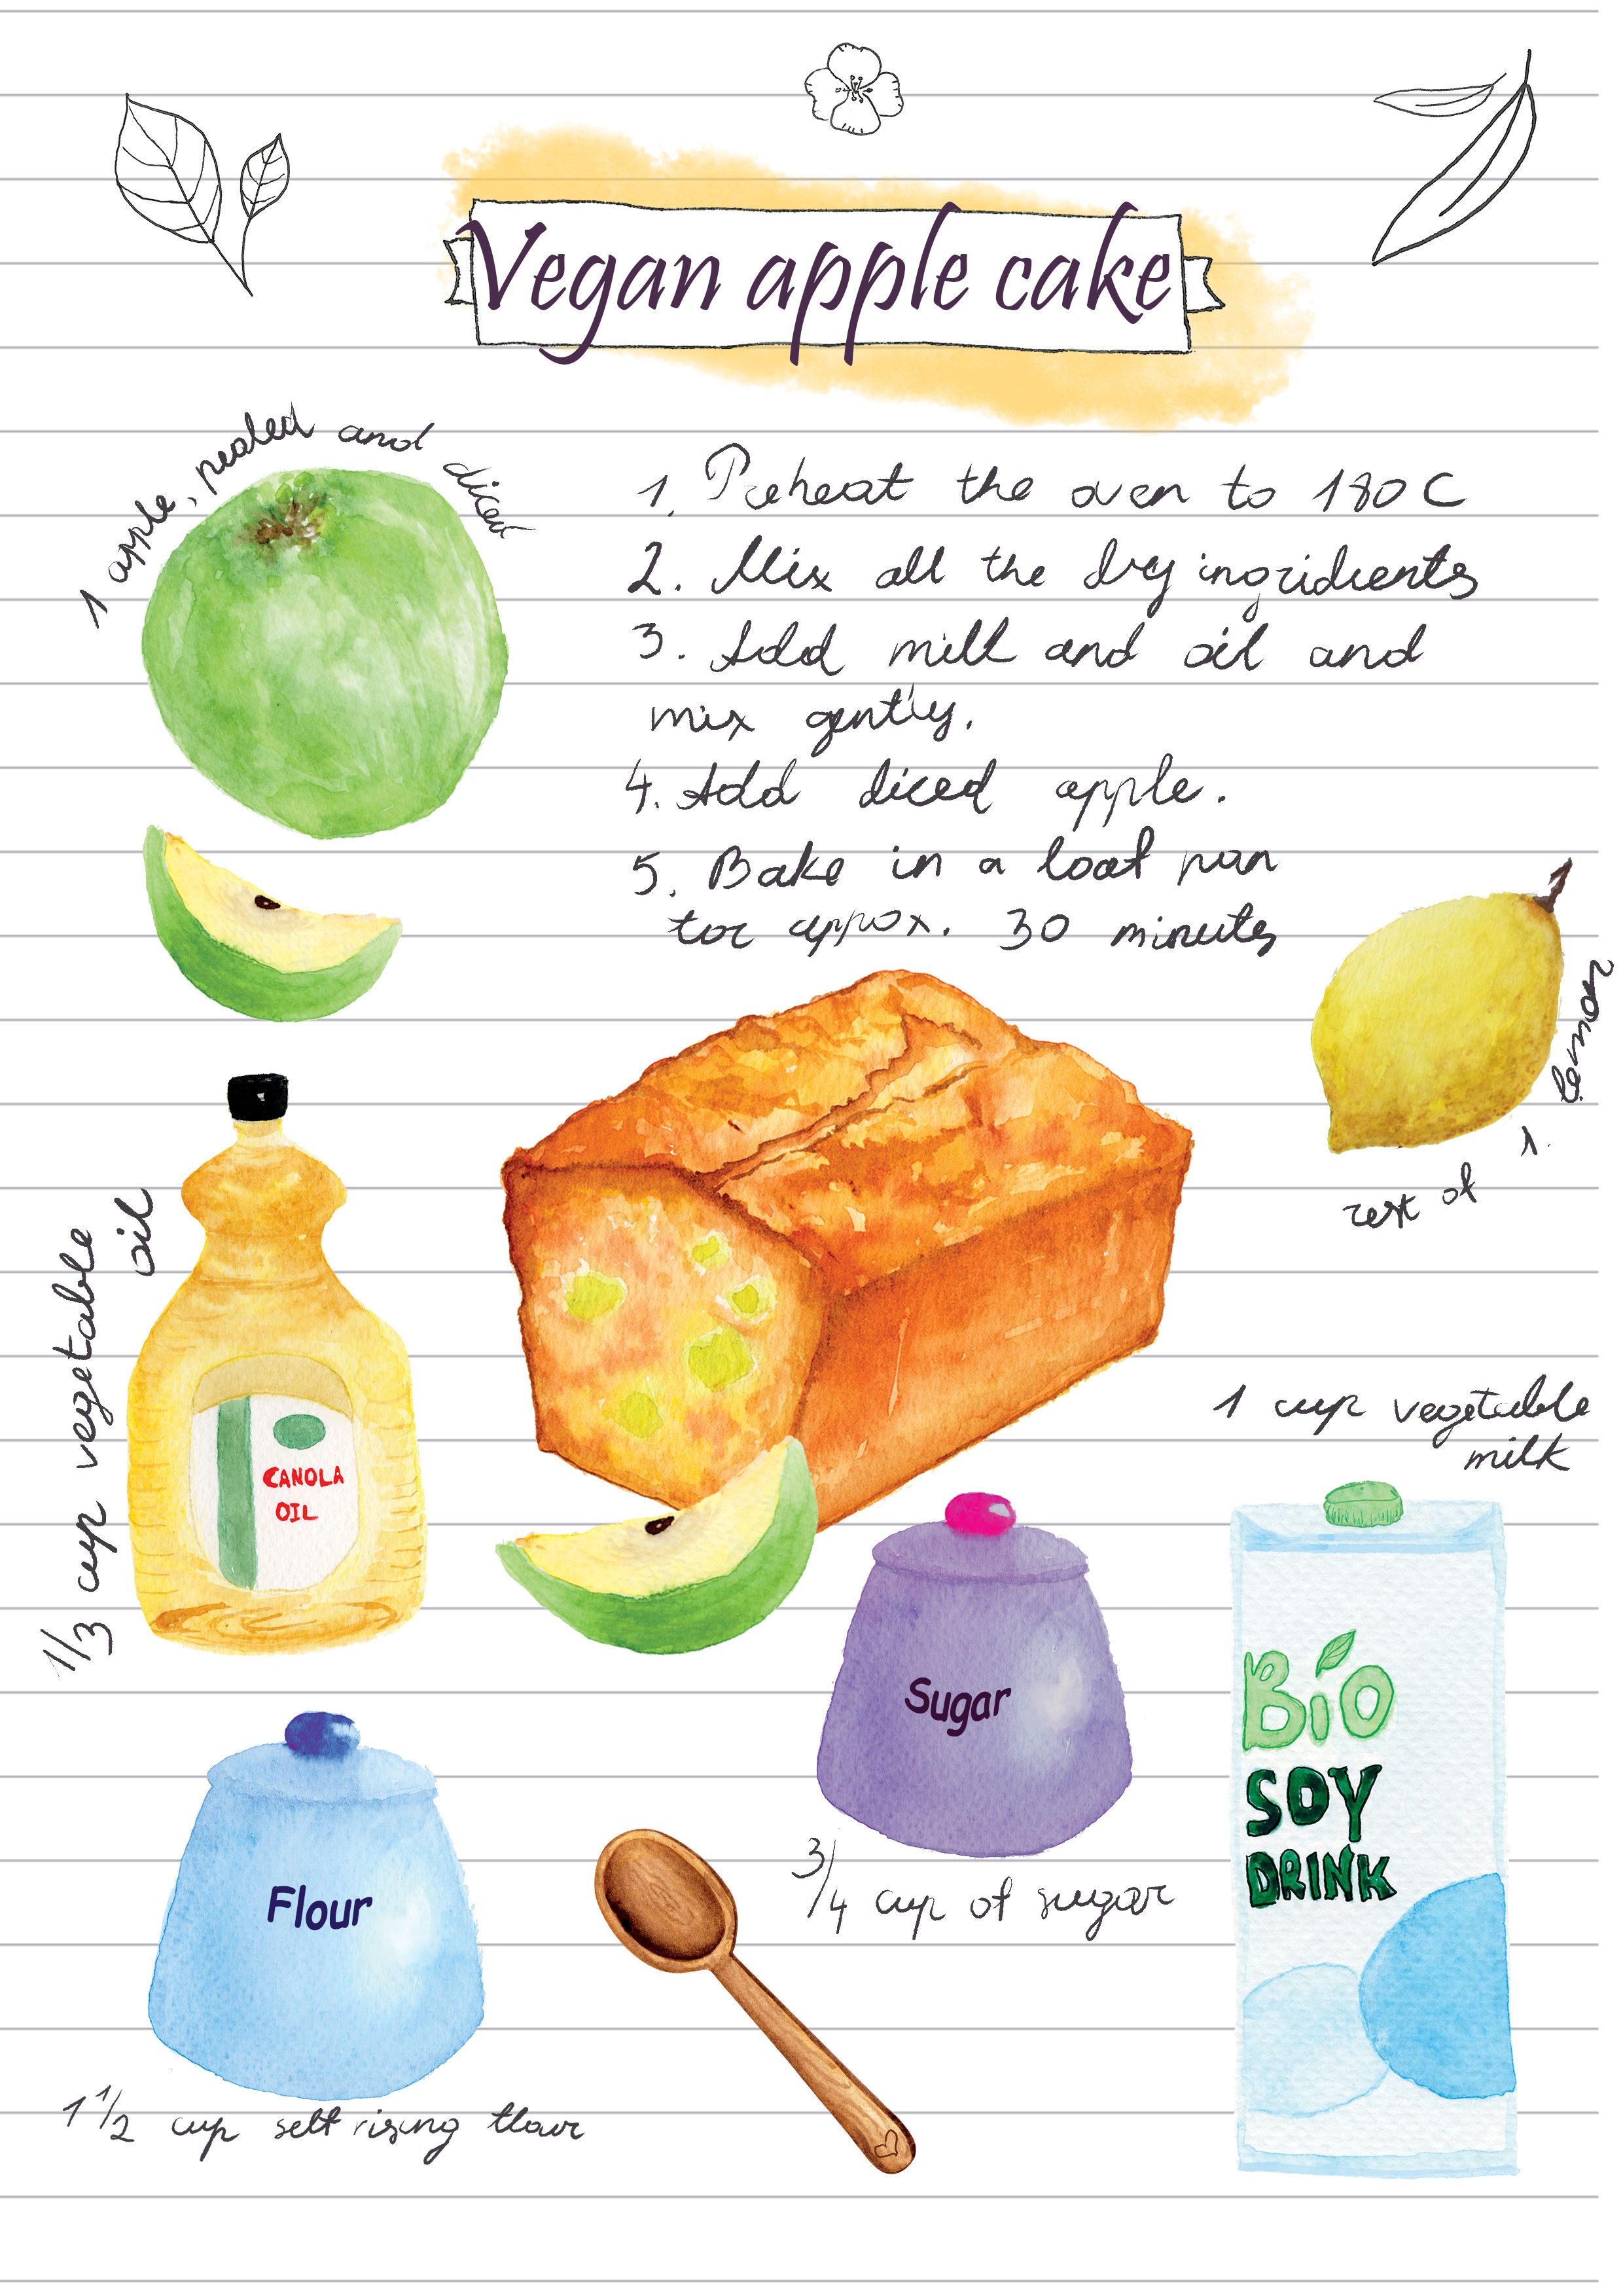 Vegan apple cake
1 apple, pealed and diced
1. Preheat the oven to 180 C
2. Mix all the dry ingridients
3. Add milk and oil and
mix gently.
4. Add diced apple.
5. Bake in a loaf pan
for appox. 30 minutes
rest of 1. lemon
1/3 cup vegetable
oil
CANOLA
OIL
1 cup vegetable
milk
Sugar
3/4 cup of sugar
Bio
SOY
DRINK
Flour
1 1/2 cup self rising flour